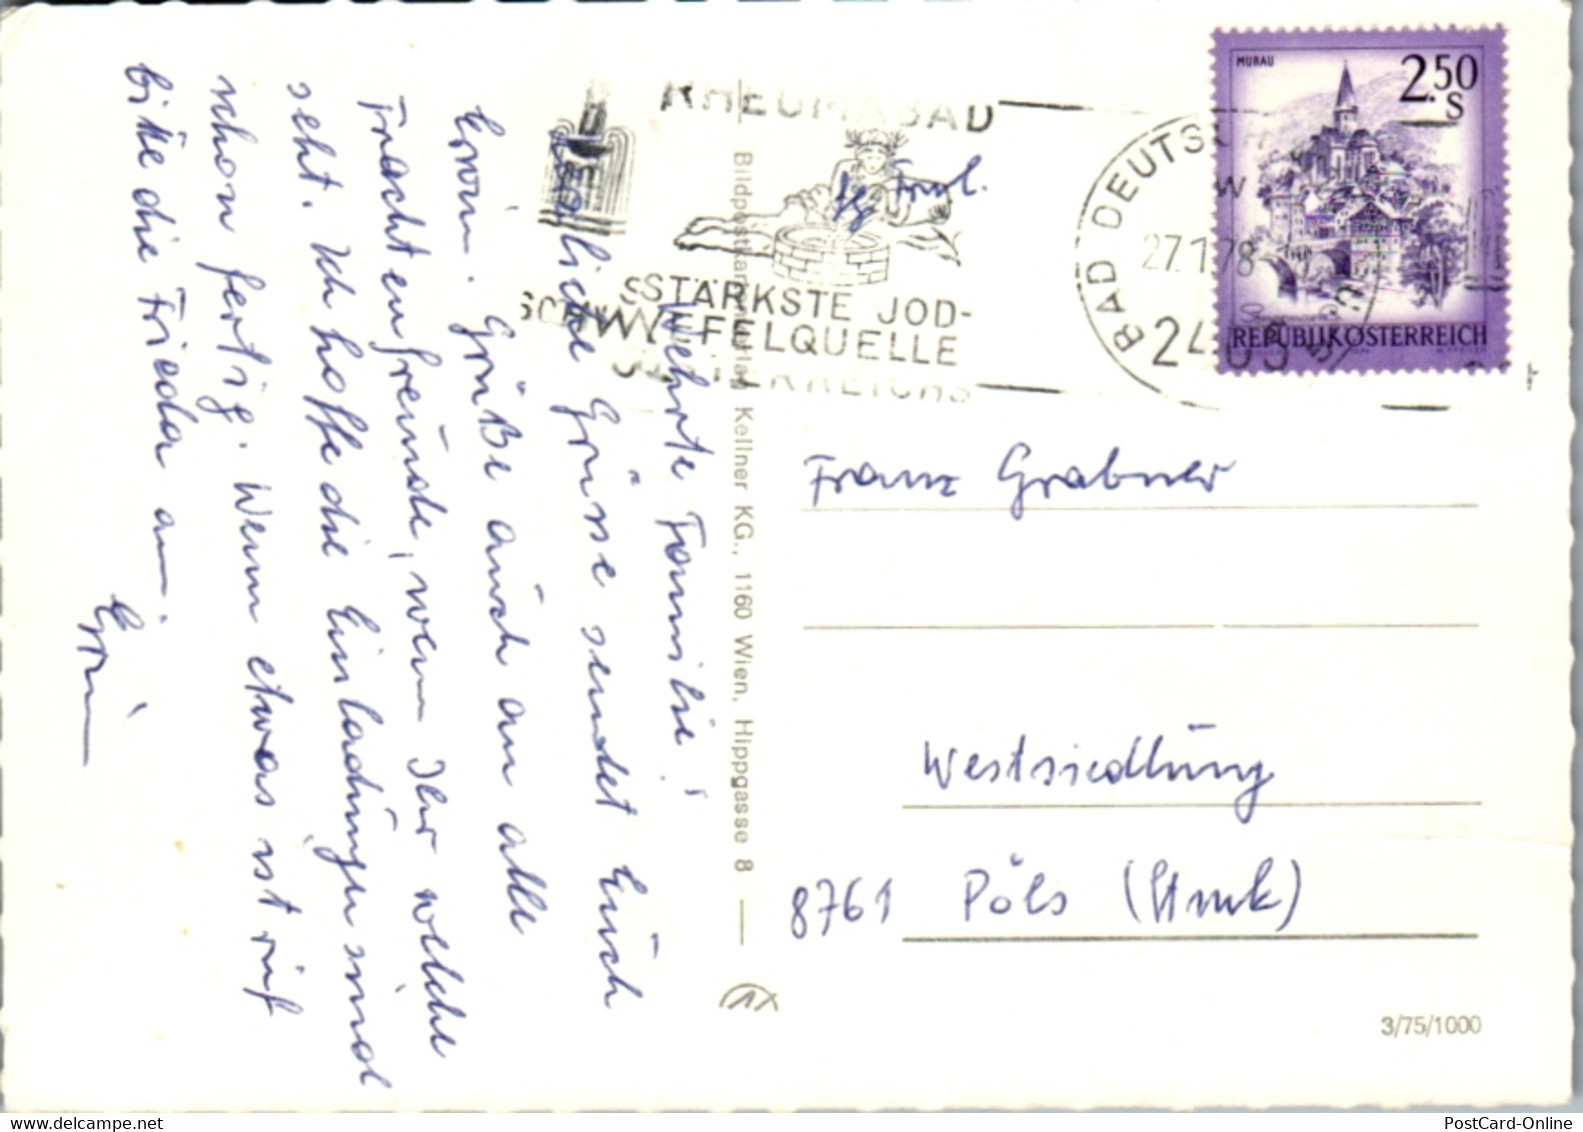 RHEUMABAD
STÄRKSTE JOD-
SCHWEFELQUELLE
ÖSTERREICHS
BAD DEUTSCH
27.1.78
2405
MURAU
2.50
S
REPUBLIK ÖSTERREICH
Werte Familie!
liche Grüsse sendet Euch
Erwin. Grüße auch an alle
Trachtenfreunde, wenn Ihr welche
seht. Ich hoffe die Einladungen sind
schon fertig. Wenn etwas ist ruf
bitte die Frieda an.
Erwin
Bildpostkartenverlag Kellner KG., 1160 Wien, Hippgasse 8
Franz Grabner
Westsiedlung
8761 Pöls (Stmk)
3/75/1000
PostCard-Online